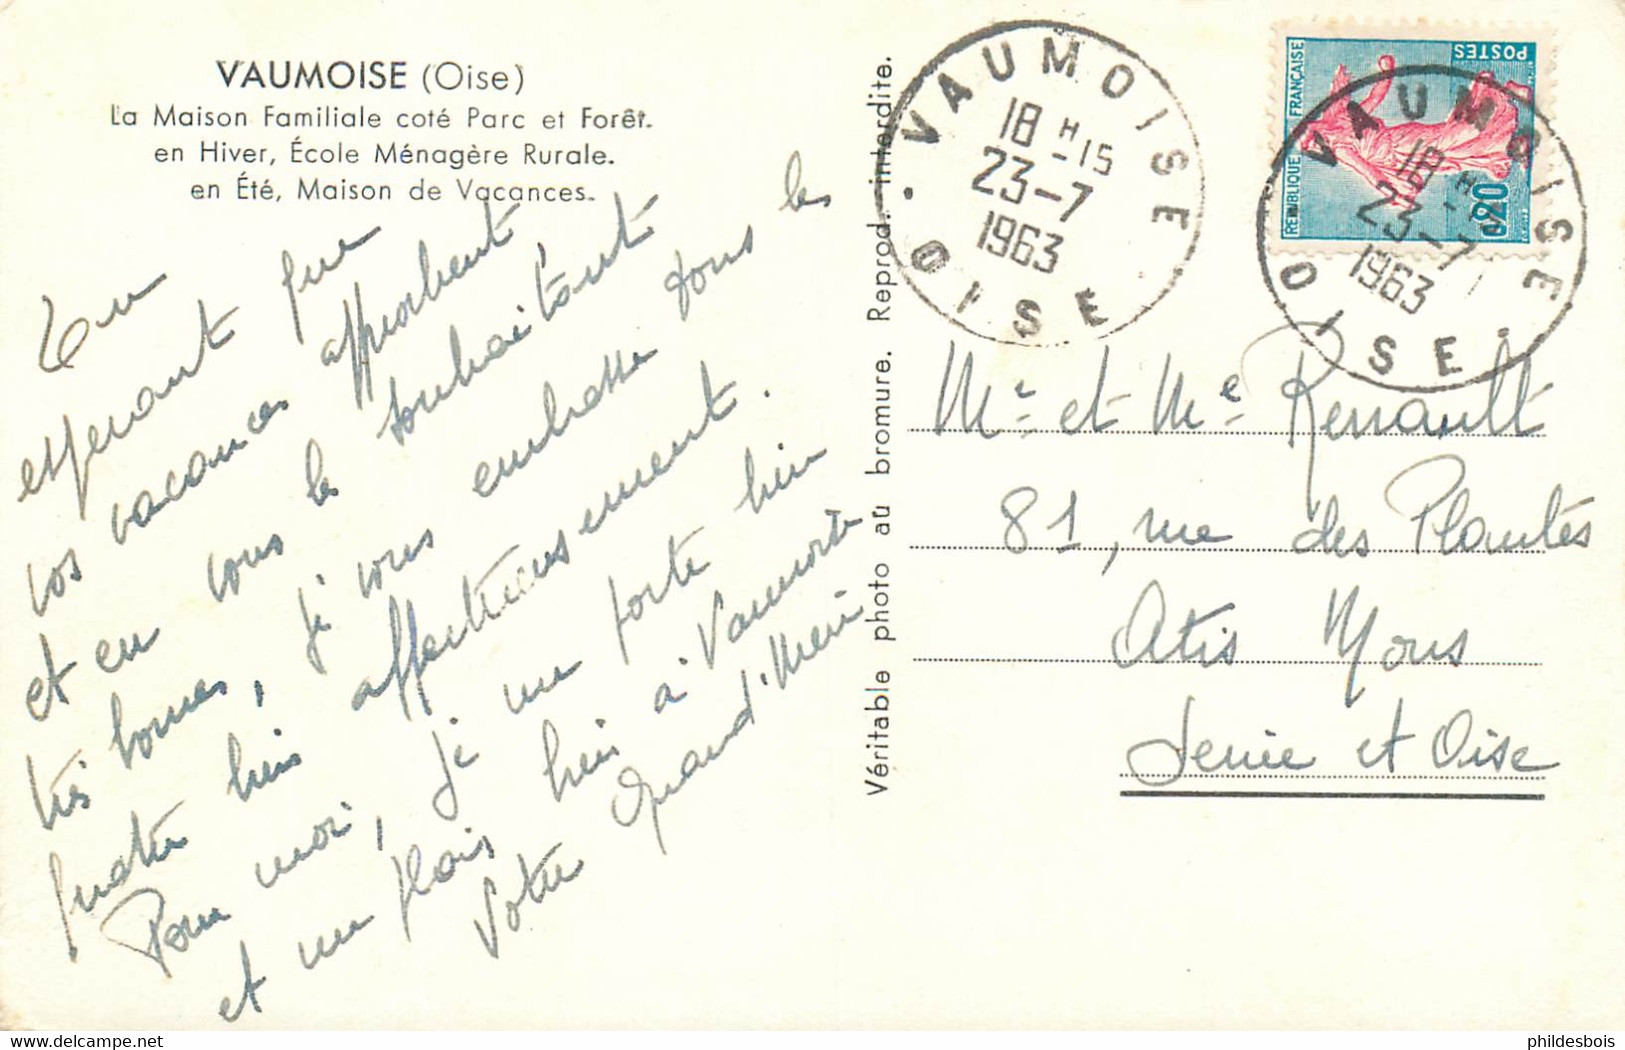 VAUMOISE (Oise)
La Maison Familiale coté Parc et Forêt.
en Hiver, École Ménagère Rurale.
en Été, Maison de Vacances.
En
esperant que
vos vacances approchent
et en vous les souhaitant
très bonnes, je vous embrasse tous les
quatre bien affectueusement.
Pour moi, je me porte bien
et me plais bien à Vaumoise
Votre Grand'Mère
Véritable photo au bromure. Reprod. interdite.
VAUMOISE
18 H -15
23-7
1963
OISE
RÉPUBLIQUE FRANÇAISE
POSTES
0,20
VAUMOISE
18 H
23-7
1963
OISE
Mr et Me Renault
81, rue des Plantes
Atis Mons
Seine et Oise
phildesbois